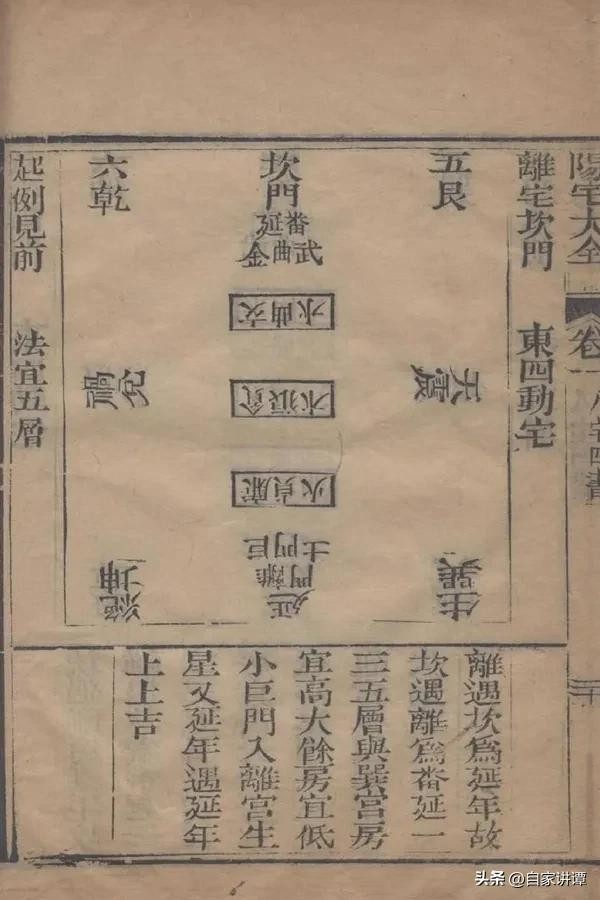 陽宅大全
卷一 八宅四書
離宅坎門 東四動宅
五艮
天震
生巽
坎門
番延
武曲金
文曲水
貪狼木
廉貞火
巨門土
離門
延
六乾
禍兌
絕坤
起例見前 法宜五層
離遇坎爲延年故
坎遇離爲番延一
三五層與巽宮房
宜高大餘房宜低
小巨門入離宮生
星又延年遇延年
上上吉
头条 @自家讲谭